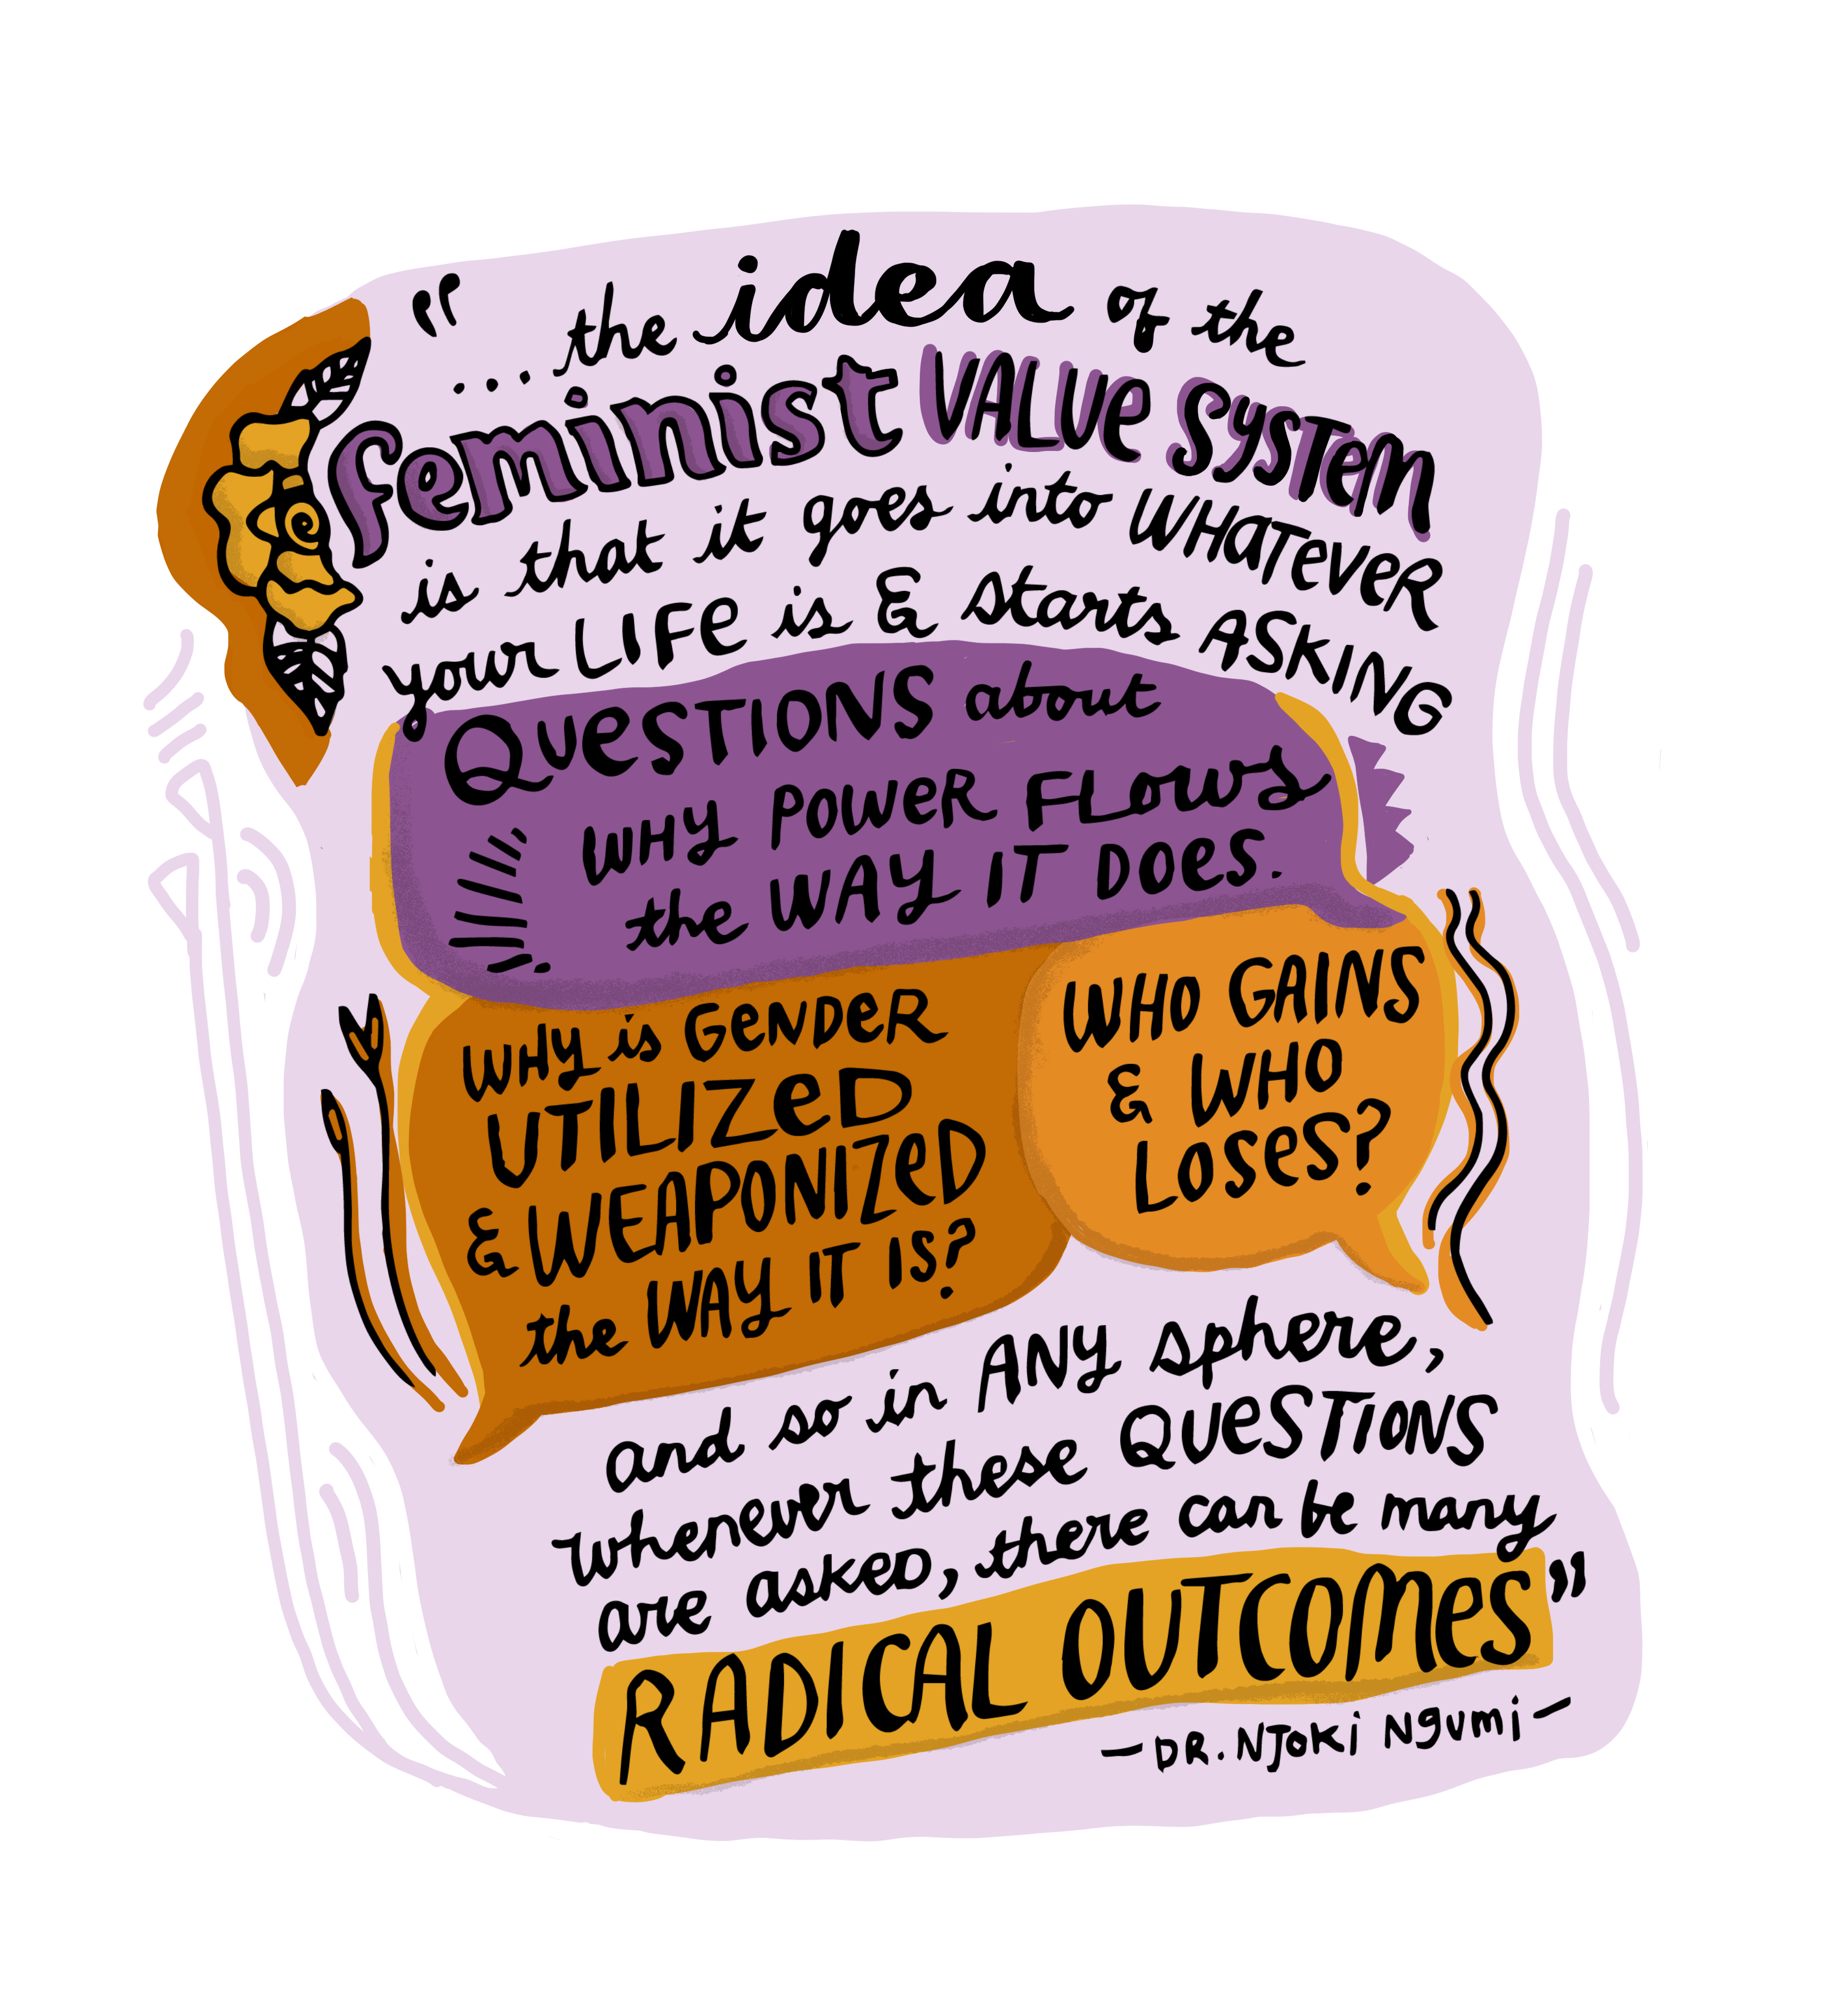 “
... the idea of the
feminist VALUE SYSTEM
is that it goes into WHATEVER
your LIFE is & starts ASKING
QUESTIONS about
WHY POWER FLOWS
the WAY IT DOES.
WHY is GENDER
UTILIZED
& WEAPONIZED
the WAY IT IS?
WHO GAINS
& WHO
LOSES?
and so in ANY sphere,
whenever these QUESTIONS
are asked, there can be many
RADICAL OUTCOMES”
— DR. NJOKI NGUMI —